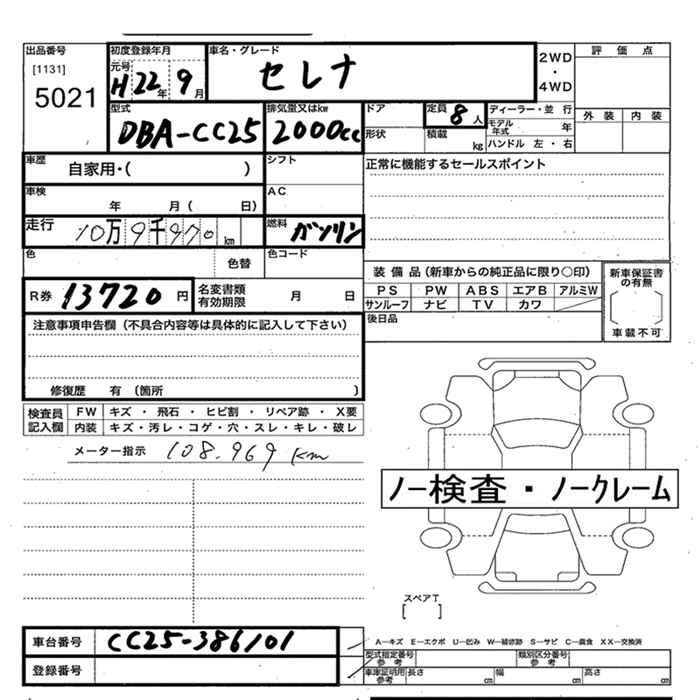 出品番号 初度登録年月 車名・グレード 2WD・4WD 評価点
[1131] 元号
5021 H22年9月 セレナ
外装 内装
型式 排気量又はkw ドア 定員 8人 ディーラー・並行
DBA-CC25 2000cc 形状 積載 kg モデル年式 年
ハンドル 左・右
車歴 自家用・( ) シフト 正常に機能するセールスポイント
車検 年 月( 日) AC
走行 10万9千970km 燃料 ガソリン
色 色替 色コード
装備品(新車からの純正品に限り○印) 新車保証書の有無
R券 13720円 名変書類有効期限 月 日 PS PW ABS エアB アルミW
サンルーフ ナビ TV カワ
[ ]
注意事項申告欄(不具合内容等は具体的に記入して下さい) 後日品 車載不可
修復歴 有(箇所 )
検査員記入欄 FW キズ・飛石・ヒビ割・リペア跡・X要
内装 キズ・汚レ・コゲ・穴・スレ・キレ・破レ
メーター指示 108.969 km
ノー検査・ノークレーム
スペアT
[ ]
車台番号 CC25-386101
A-キズ E-エクボ U-凹み W-補修跡 S-サビ C-腐食 XX-交換済
登録番号 型式指定番号参考 類別区分番号参考
車庫証明用参考 長さ cm 幅 cm 高さ cm